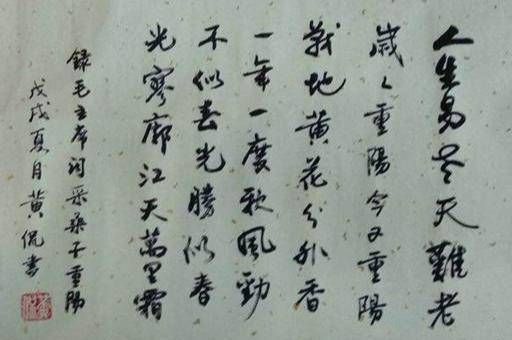 人生易老天難老
歲々重陽今又重陽
戰地黄花分外香
一年一度秋風勁
不似春光勝似春
光寥廓江天萬里霜
錄毛主席词采桑子重陽
戊戌夏月黄侃書